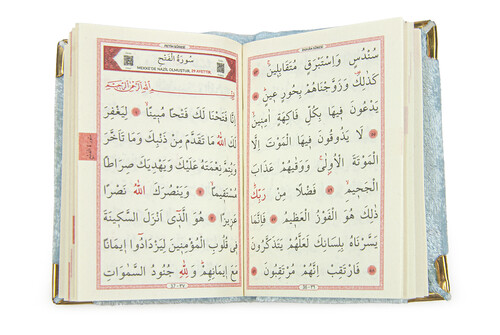 DUHÂN SÛRESİ
سُنْدُسٍ وَاِسْتَبْرَقٍ مُتَقَابِلٖينَۙ
كَذٰلِكَ وَزَوَّجْنَاهُمْ بِحُورٍ عٖينٍۜ
يَدْعُونَ فٖيهَا بِكُلِّ فَاكِهَةٍ اٰمِنٖينَۙ
لَا يَذُوقُونَ فٖيهَا الْمَوْتَ اِلَّا
الْمَوْتَةَ الْاُولٰىۚ وَوَقٰيهُمْ عَذَابَ
الْجَحٖيمِۙ فَضْلًا مِنْ رَبِّكَۜ
ذٰلِكَ هُوَ الْفَوْزُ الْعَظٖيمُ فَاِنَّمَا
يَسَّرْنَاهُ بِلِسَانِكَ لَعَلَّهُمْ يَتَذَكَّرُونَ
فَارْتَقِبْ اِنَّهُمْ مُرْتَقِبُونَ
36 - ٣٦
FETİH SÛRESİ
سُورَةُ الْفَتْحِ
بِسْمِ اللّٰهِ الرَّحْمٰنِ الرَّحٖيمِ
اِنَّا فَتَحْنَا لَكَ فَتْحًا مُبٖينًاۙ لِيَغْفِرَ
لَكَ اللّٰهُ مَا تَقَدَّمَ مِنْ ذَنْبِكَ وَمَا تَاَخَّرَ
وَيُتِمَّ نِعْمَتَهُ عَلَيْكَ وَيَهْدِيَكَ صِرَاطًا
مُسْتَقٖيمًاۙ وَيَنْصُرَكَ اللّٰهُ نَصْرًا
عَزٖيزًا هُوَ الَّذٖٓى اَنْزَلَ السَّكٖينَةَ
فٖى قُلُوبِ الْمُؤْمِنٖينَ لِيَزْدَادُٓوا اٖيمَانًا
مَعَ اٖيمَانِهِمْۜ وَلِلّٰهِ جُنُودُ السَّمٰوَاتِ
37 - ٣٧